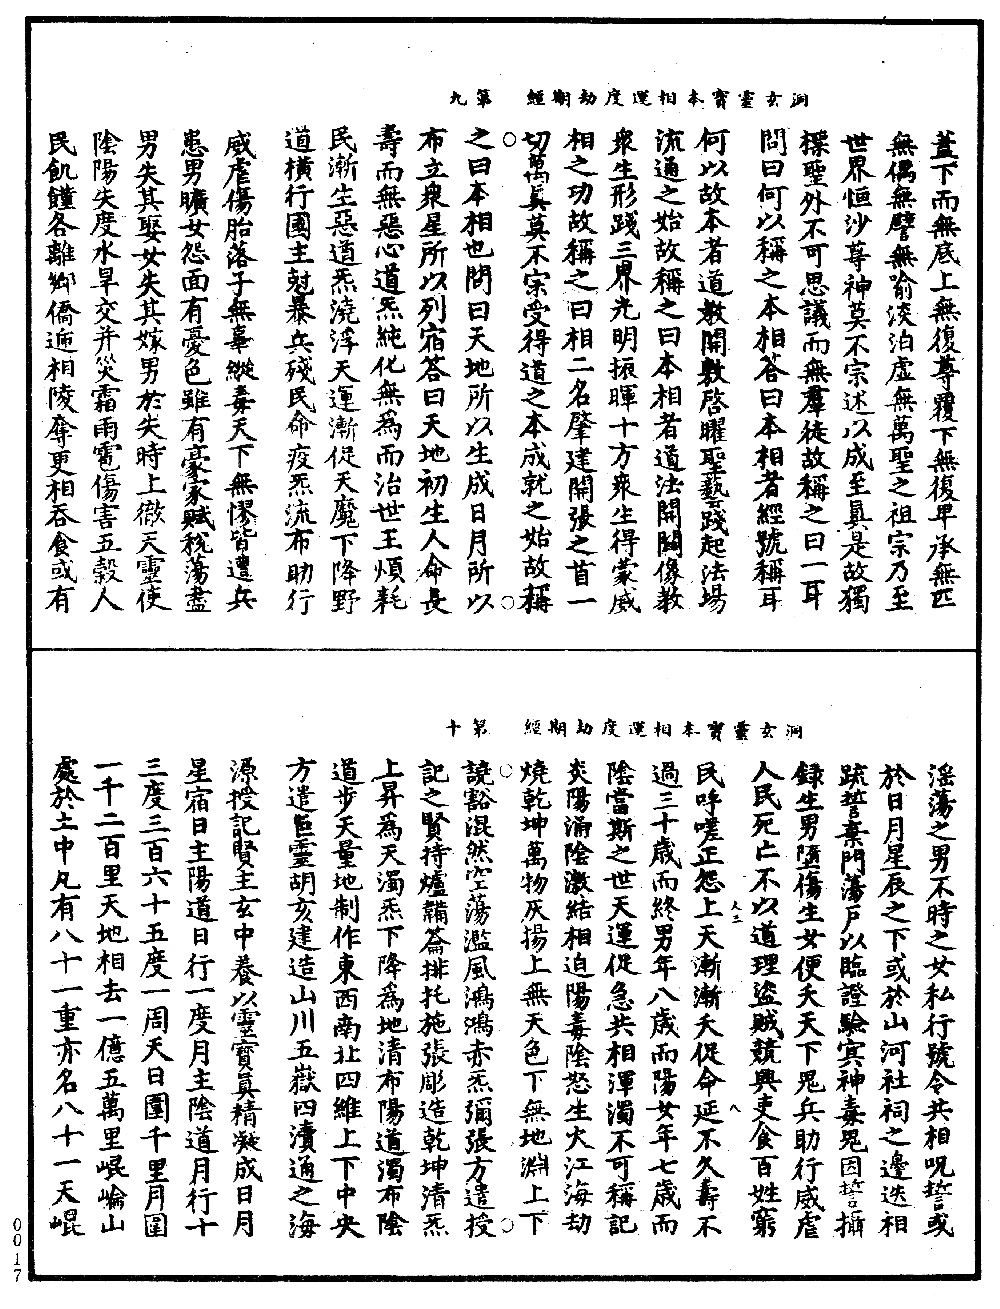 洞玄靈寶本相運度劫期經　第九
蓋下而無底上無復尊覆下無復卑承無匹
無偶無譬無喻淡泊虛無萬聖之祖宗乃至
世界恒沙尊神莫不宗述以成至眞是故獨
標聖外不可思議而無羣徒故稱之曰一耳
問曰何以稱之本相答曰本相者經號稱耳
何以故本者道教開敷啓曜聖藝踐起法場
流通之始故稱之曰本相者道法開闢像教
衆生形踐三界光明振暉十方衆生得蒙威
相之功故稱之曰相二名肇建開張之首一
切萬眞莫不宗受得道之本成就之始故稱
之曰本相也問曰天地所以生成日月所以
布立衆星所以列宿答曰天地初生人命長
壽而無惡心道炁純化無爲而治世王煩耗
民漸生惡道炁澆浮天運漸促天魔下降野
道橫行國主尅暴兵殘民命疫炁流布助行
威虐傷胎落子無辜縱毒天下無憀皆遭兵
患男曠女怨面有憂色雖有豪家賦稅蕩盡
男失其娶女失其嫁男於失時上徹天靈使
陰陽失度水旱交并災霜雨雹傷害五穀人
民飢饉各離鄉僑遞相陵奪更相吞食或有
洞玄靈寶本相運度劫期經　第十
淫蕩之男不時之女私行號令共相呪誓或
於日月星辰之下或於山河社祠之邊迭相
䟽誓棄門蕩戶以臨證驗㝠神毒鬼因誓攝
録生男墮傷生女便夭天下鬼兵助行威虐
人民死亡不以道理盜賊競興吏食百姓窮
民呼嗟正怨上天漸漸夭促命延不久壽不
過三十歲而終男年八歲而陽女年七歲而
陰當斯之世天運促急共相渾濁不可稱記
炎陽涌陰激結相迫陽毒陰怒生大江海劫
燒乾坤萬物灰揚上無天色下無地淵上下
譊豁混然空蕩濫風鴻鴻赤炁彌張方遣授
記之賢持爐鞴籥排托施張彫造乾坤清炁
上昇爲天濁炁下降爲地清布陽道濁布陰
道步天量地制作東西南北四維上下中央
方遣巨靈胡亥建造山川五嶽四瀆通之海
源授記賢主玄中養以靈寶眞精凝成日月
星宿日主陽道日行一度月主陰道月行十
三度三百六十五度一周天日圍千里月圍
一千二百里天地相去一億五萬里崐崘山
處於土中凡有八十一重亦名八十一天崐
0017